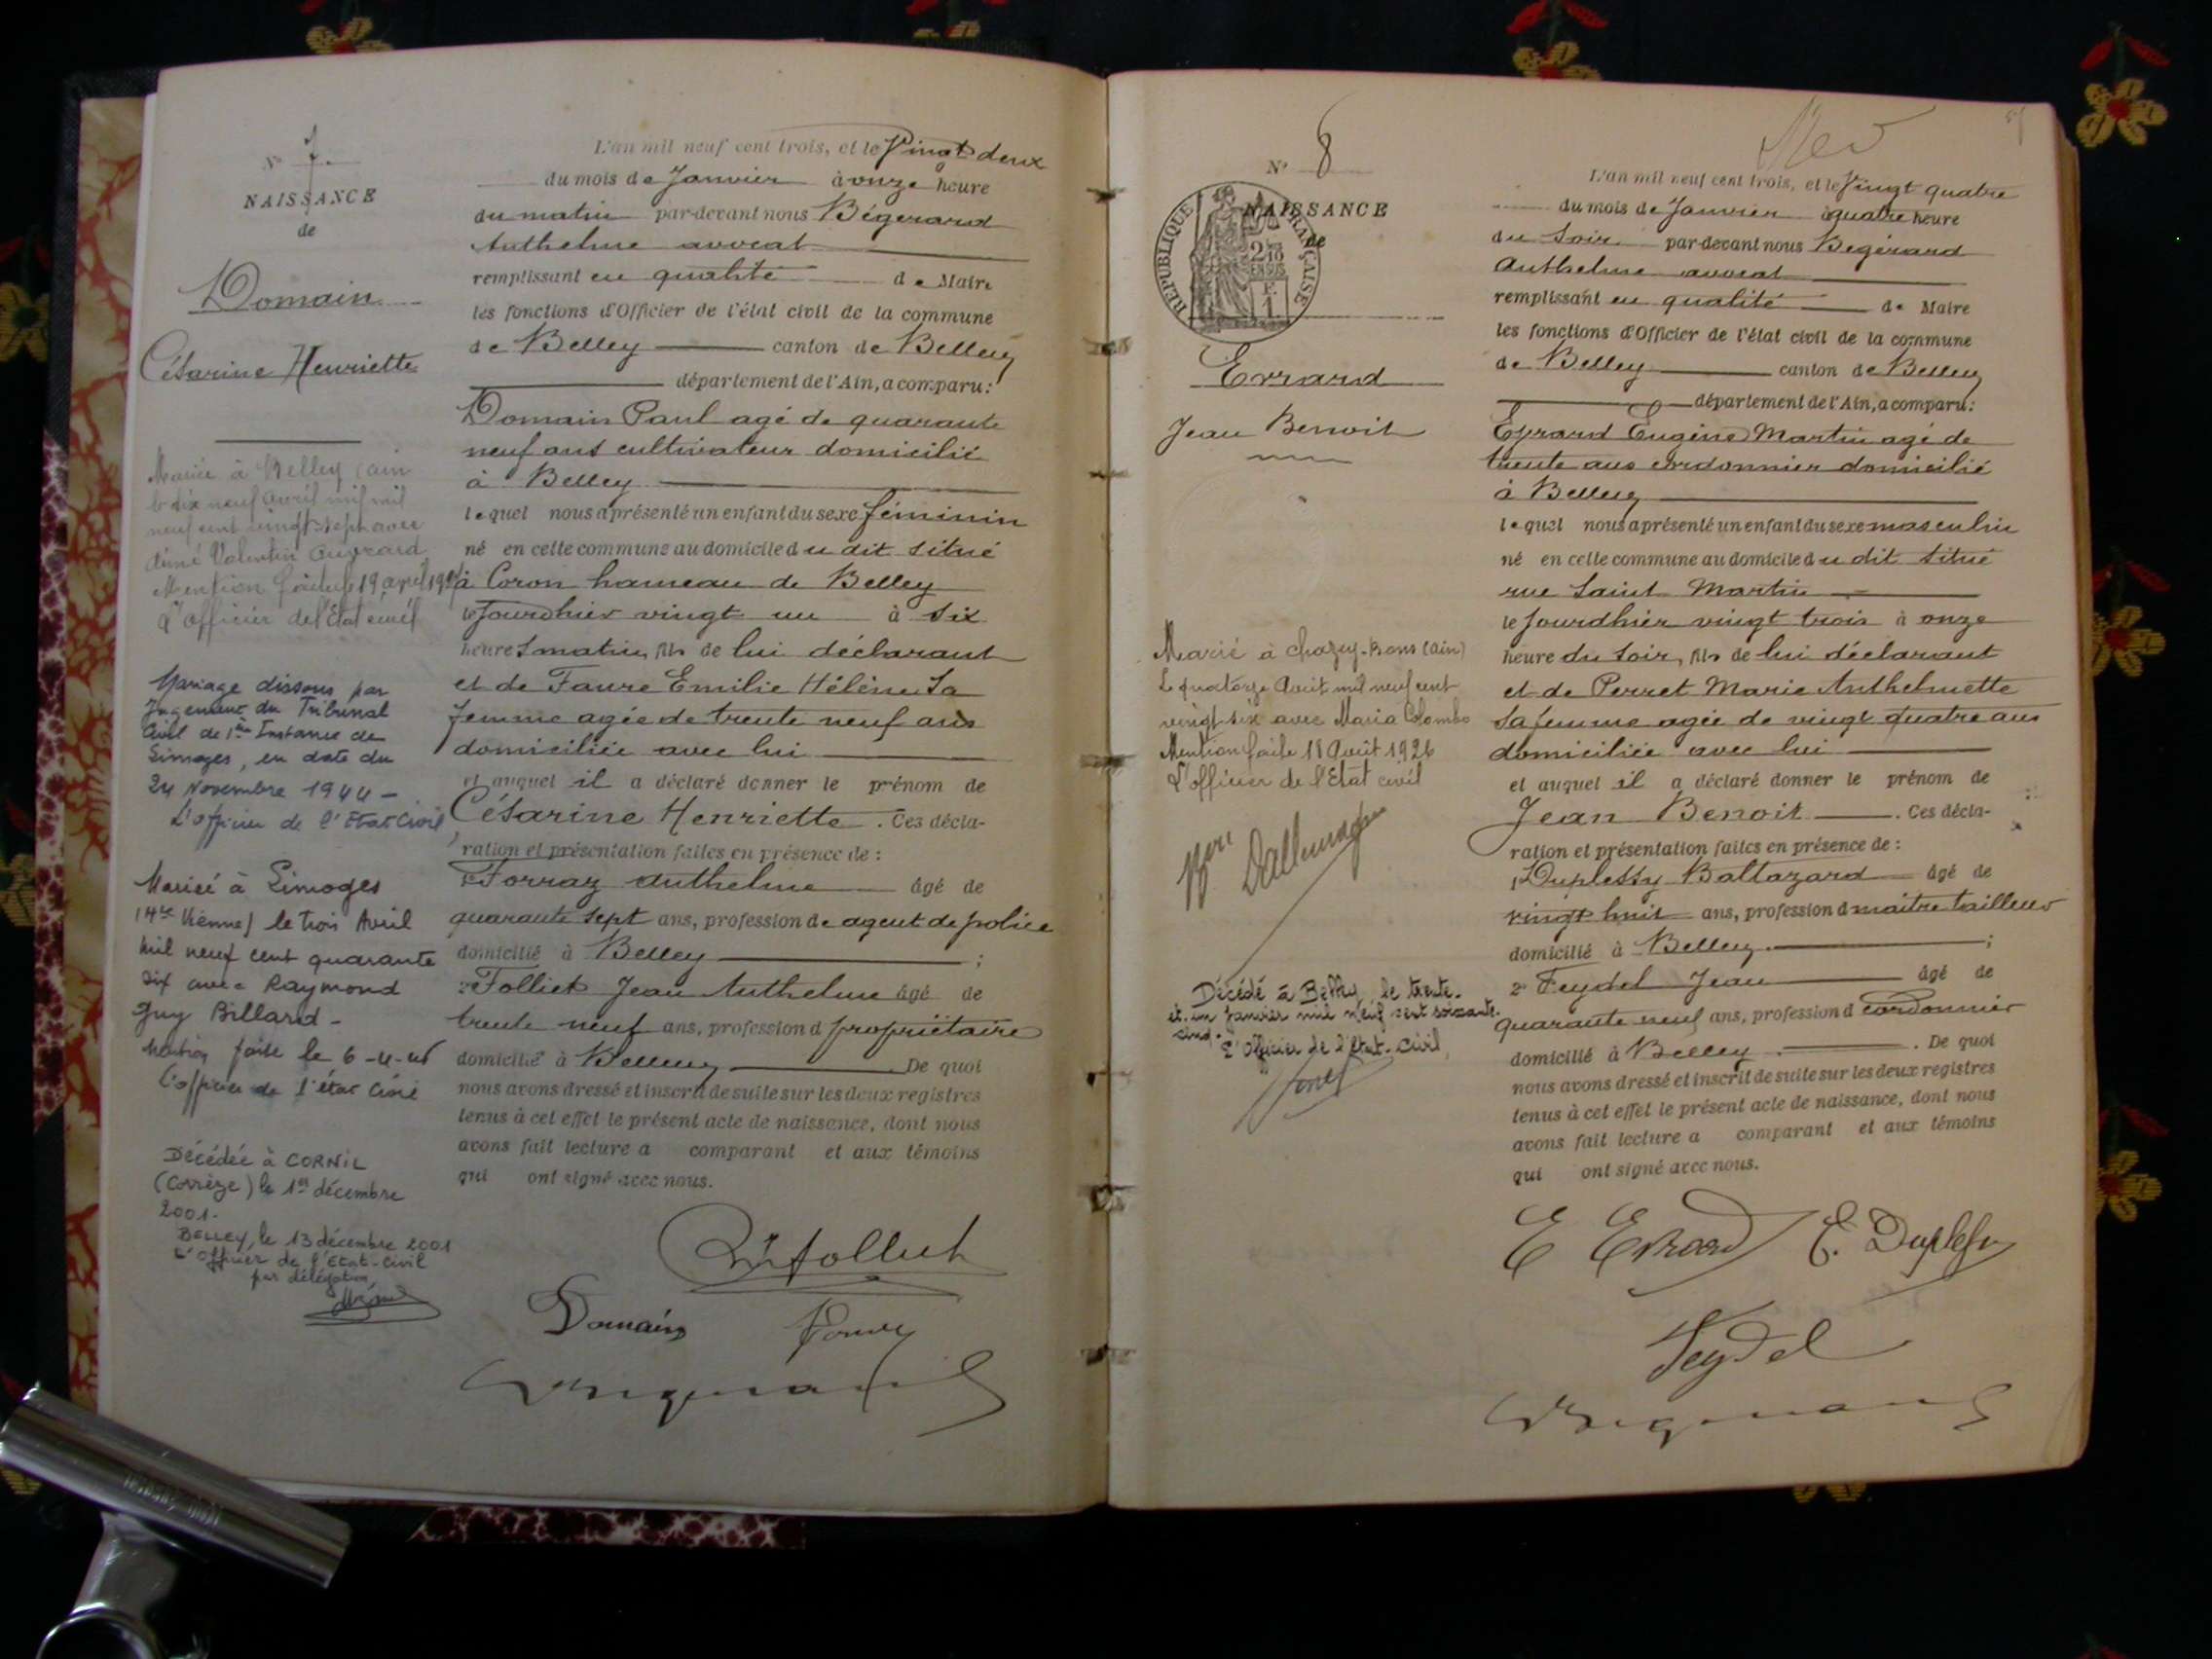 N° 7
NAISSANCE
de
Domain
Césarine Henriette
Mariée à Belley (ain
le dix neuf avril mil
neuf cent vingt sept avec
Aimé Valentin
Mention faite le 19 avril
L'officier de l'Etat civil
Mariage dissous par
Jugement du Tribunal
Civil de 1ère Instance de
Limoges, en date du
24 Novembre 1944 -
L'officier de l'Etat Civil
Mariée à Limoges
(Hte Vienne) le trois Avril
mil neuf cent quarante
six avec Raymond
Guy Billard -
Mention faite le 6-4-46
L'officier de l'état civil
Décédée à CORNIL
(Corrèze) le 1er décembre
2001.
BELLEY, le 13 décembre 2001
L'Officier de l'Etat-Civil
par délégation,
L'an mil neuf cent trois, et le Vingt deux
du mois de Janvier à onze heure
du matin par-devant nous Bégerard
Anthelme avocat
remplissant en qualité de Maire
les fonctions d'Officier de l'état civil de la commune
de Belley canton de Belley
département de l'Ain, a comparu:
Domain Paul agé de quarante
neuf ans cultivateur domicilié
à Belley
lequel nous a présenté un enfant du sexe féminin
né en cette commune au domicile du dit situé
à Coron hameau de Belley
le jourdhier vingt un à six
heures matin, fils de lui déclarant
et de Faure Emilie Hélène sa
femme agée de trente neuf ans
domiciliée avec lui
et auquel il a déclaré donner le prénom de
Césarine Henriette. Ces décla-
ration et présentation faites en présence de :
1° Forraz Anthelme âgé de
quarante sept ans, profession de agent de police
domicilié à Belley ;
2° Folliet Jean Anthelme âgé de
trente neuf ans, profession d propriétaire
domicilié à Belley De quoi
nous avons dressé et inscrit de suite sur les deux registres
tenus à cet effet le présent acte de naissance, dont nous
avons fait lecture a comparant et aux témoins
qui ont signé avec nous.
Domain
N° 8
NAISSANCE
de
REPUBLIQUE FRANÇAISE
2/10
EN SUS
F.
1
Errard
Jean Benoit
Marié à Chazey-Bons (Ain)
Le quatorze Août mil neuf cent
vingt-six avec Maria Colombo
Mention faite 18 Août 1926
L'officier de l'Etat civil
Décédé à Belley, le trente-
et-un Janvier mil neuf cent soixante-
cinq.
L'Officier de l'Etat-Civil,
L'an mil neuf cent trois, et le Vingt quatre
du mois de Janvier à quatre heure
du soir par-devant nous Begérard
Anthelme avocat
remplissant en qualité de Maire
les fonctions d'Officier de l'état civil de la commune
de Belley canton de Belley
département de l'Ain, a comparu:
Errard Eugène Martin agé de
trente ans cordonnier domicilié
à Belley
lequel nous a présenté un enfant du sexe masculin
né en cette commune au domicile du dit situé
rue Saint Martin
le jourdhier vingt trois à onze
heure du soir, fils de lui déclarant
et de Perret Marie Anthelmette
sa femme agée de vingt quatre ans
domiciliée avec lui
et auquel il a déclaré donner le prénom de
Jean Benoit. Ces décla-
ration et présentation faites en présence de :
1° Duplessy Baltazard âgé de
vingt huit ans, profession d maitre tailleur
domicilié à Belley. ;
2° Feydel Jean âgé de
quarante neuf ans, profession d cordonnier
domicilié à Belley. De quoi
nous avons dressé et inscrit de suite sur les deux registres
tenus à cet effet le présent acte de naissance, dont nous
avons fait lecture a comparant et aux témoins
qui ont signé avec nous.
E Errard E. Duplessy
Feydel